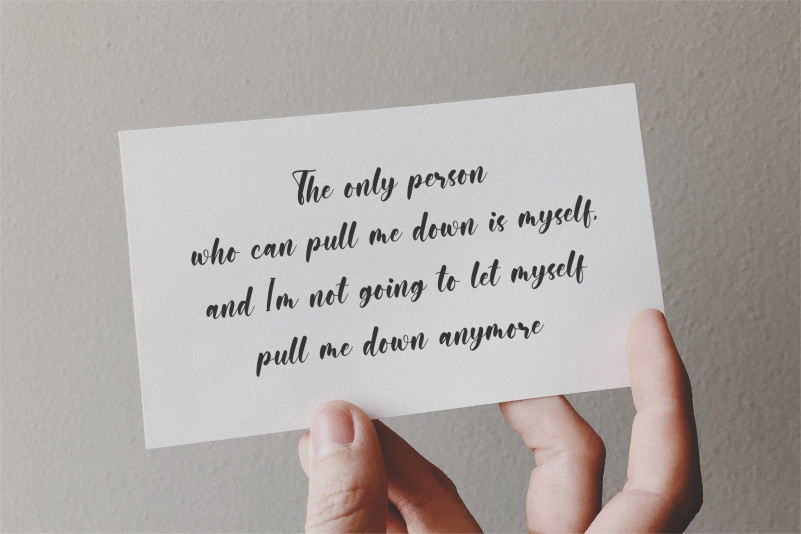 The only person
who can pull me down is myself,
and I'm not going to let myself
pull me down anymore